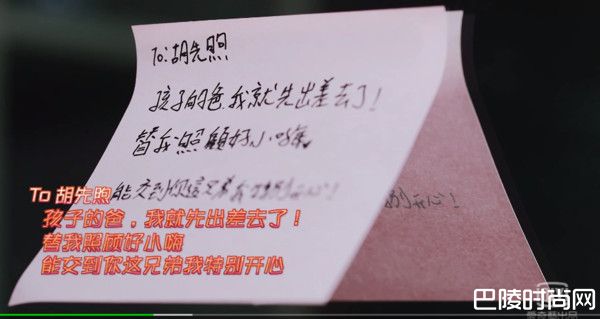 To:胡先煦
孩子的爸,我就先出差去了!
替我照顧好小嗨
能交到你这兄弟我特别开心!
别开心!
To 胡先煦
孩子的爸,我就先出差去了!
替我照顾好小嗨
能交到你这兄弟我特别开心
爱奇艺出品
巴陵时尚网